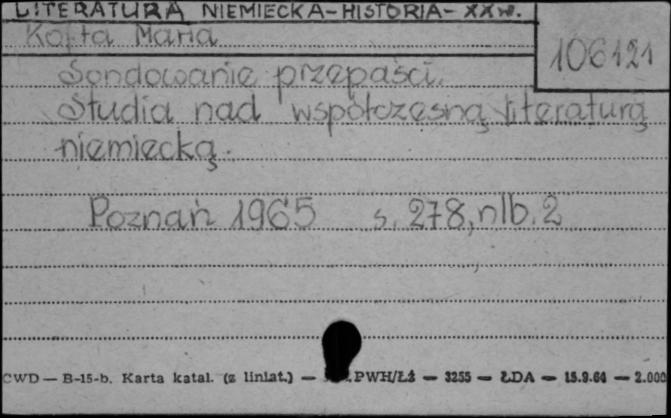 LITERATURA NIEMIECKA-HISTORIA-XXw.
Kofta Maria
106121
Sondowanie przepaści.
Studia nad współczesną literaturą
niemiecką.
Poznań 1965 s. 278, nlb. 2
CWD — B-15-b. Karta katal. (z liniat.) — PWH/Łź — 3255 — ŁDA — 15.9.64 — 2.000